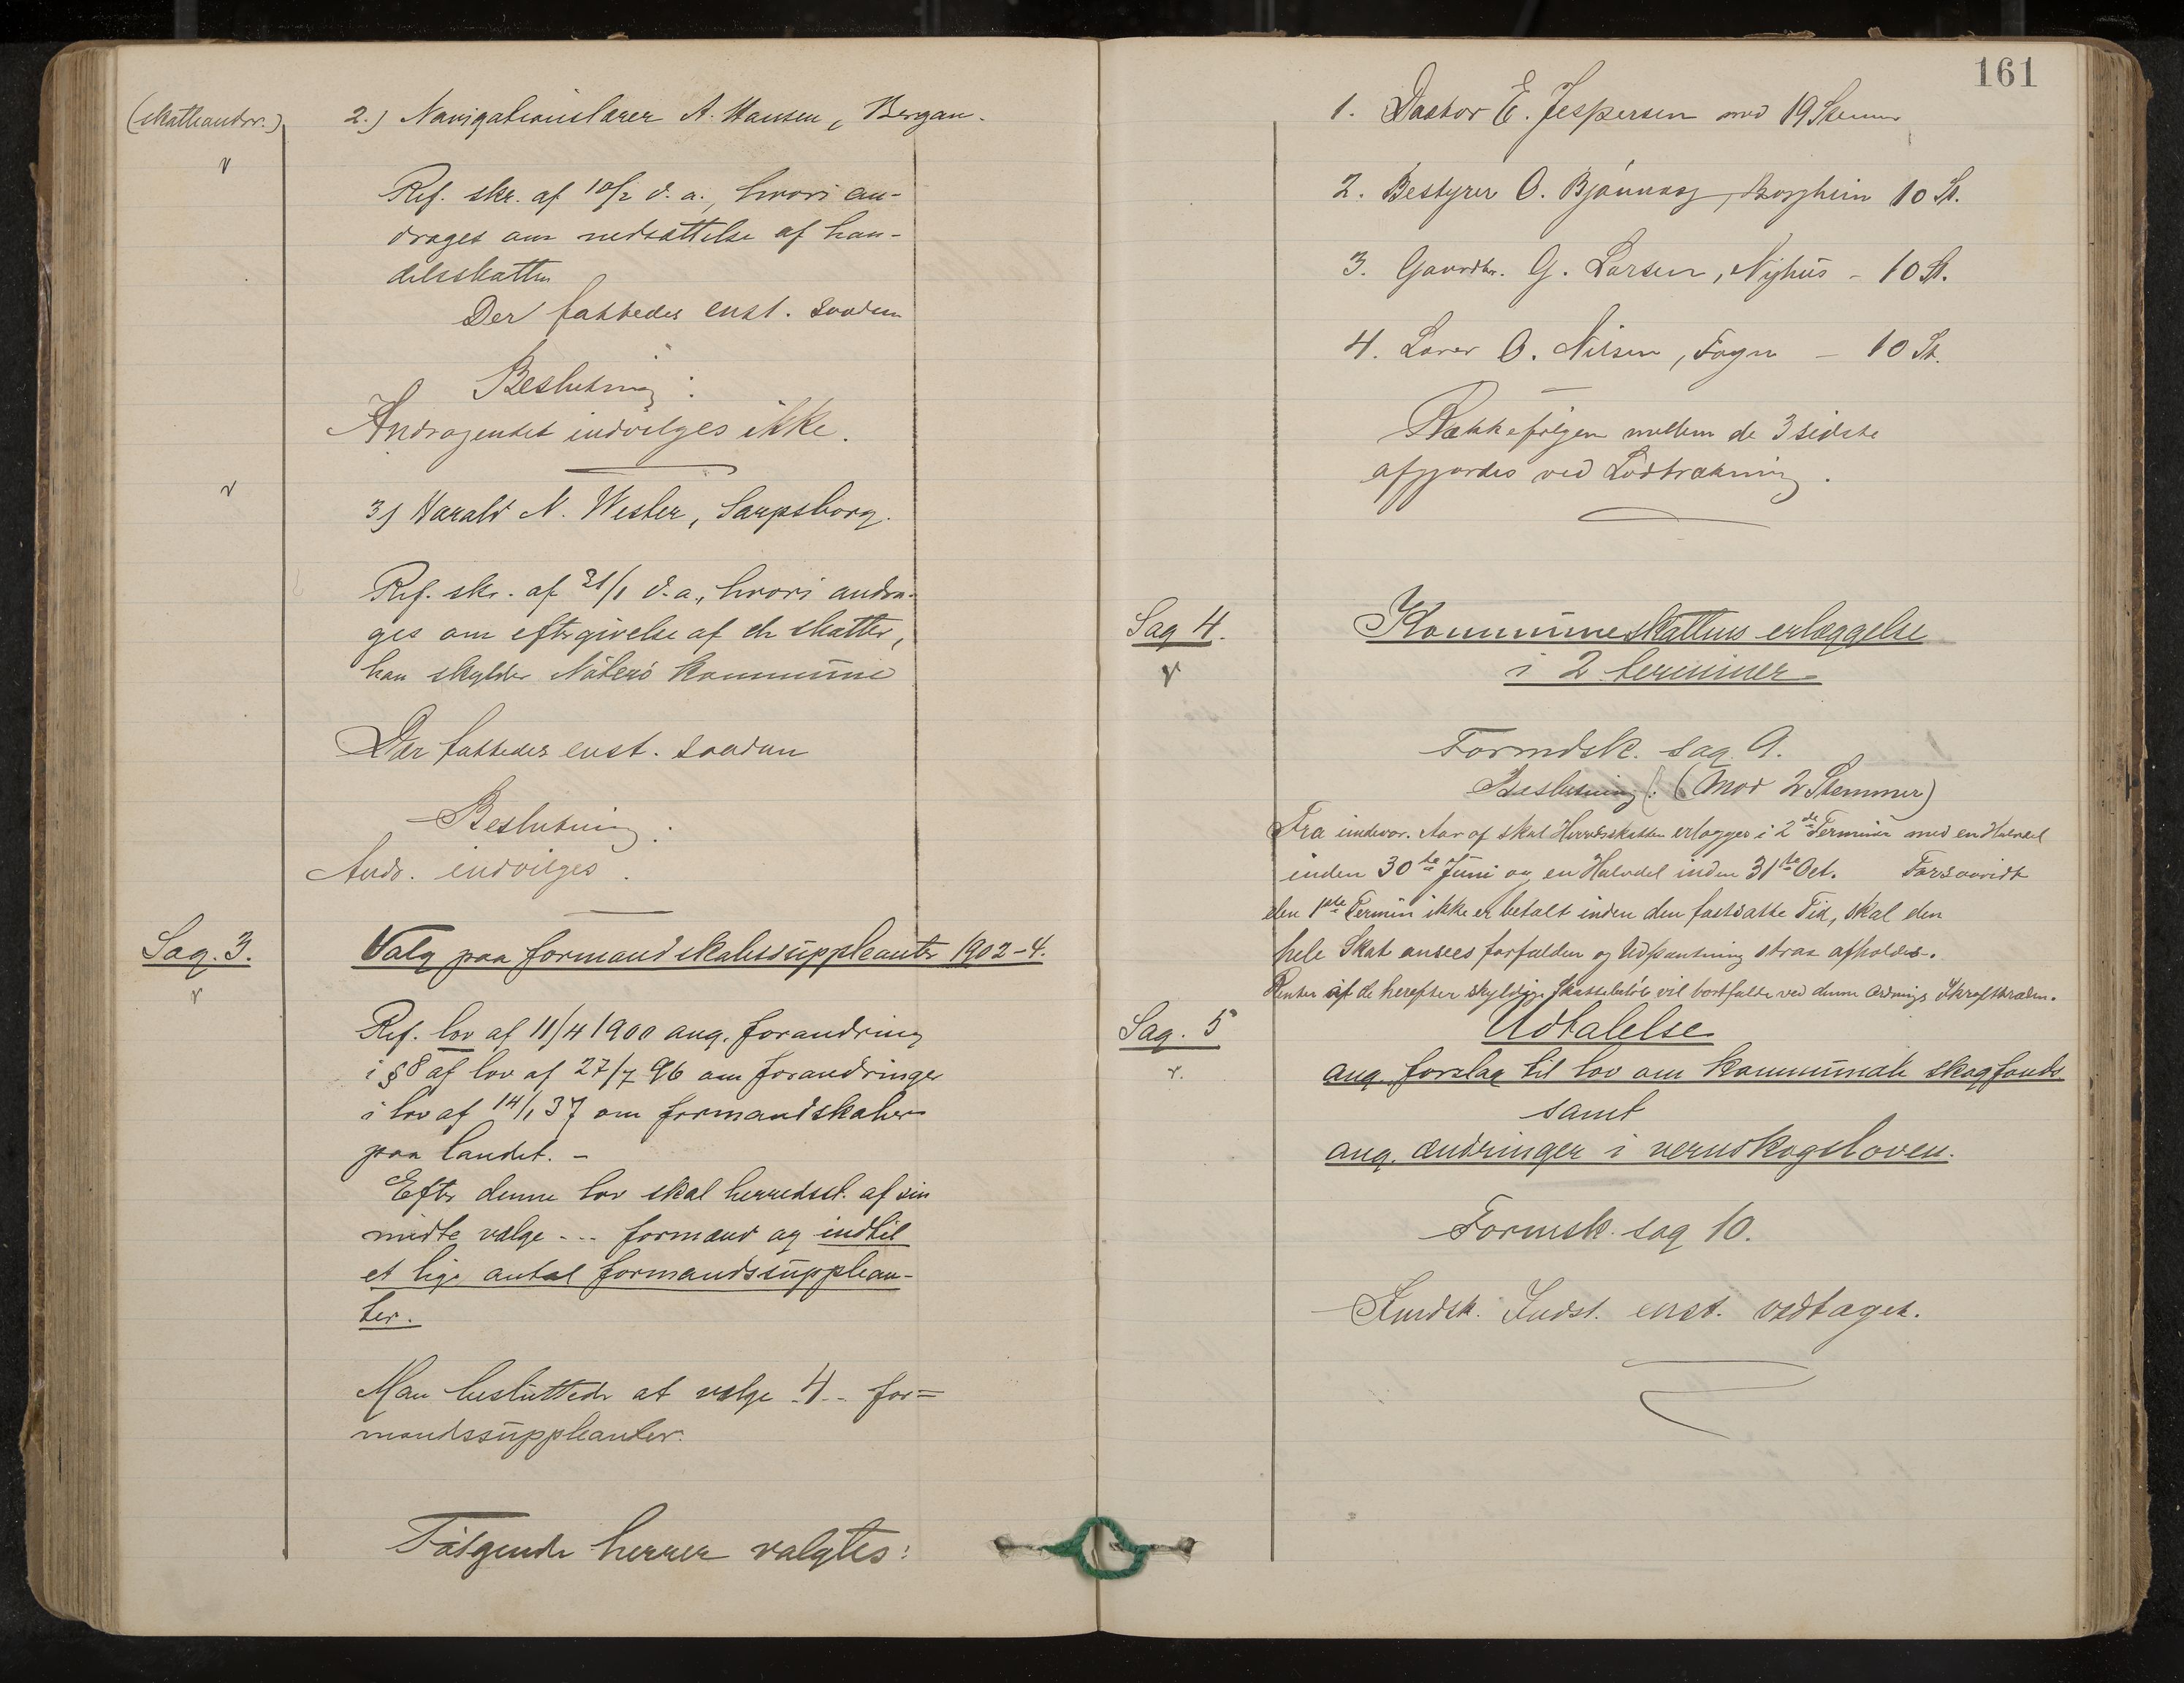 (skatteandr.)
2.) Navigationslærer A. Hansen, Bergan.
v
Ref. skr. af 10/2 d. a., hvori an-
drages om nedsættelse af han-
delsskatten
Der fattedes enst. saadan
Beslutning:
Andragendet indvilges ikke.
v
3) Harald N. Wester, Sarpsborg.
Ref. skr. af 31/1 d. a., hvori andra-
ges om eftergivelse af de skatter,
han skylder Nøterø kommune
Der fattedes enst. saadan
Beslutning:
Andr. indvilges.
Sag. 3.
Valg paa formandskabssuppleanter 1902-4.
v
Ref. lov af 11/4 1900 ang. forandring
i § 8 af lov af 27/7 96 om forandringer
i lov af 14/1 37 om formandskaber
paa landet. -
Efter denne lov skal herredsst. af sin
midte vælge ... formænd og indtil
et lige antal formandssupplean-
ter.
Man besluttede at vælge .4.. for=
mandssuppleanter.
Følgende herrer valgtes:
161
1. Doktor E. Jespersen med 19 Stemmer
2. Bestyrer O. Bjønness, Borgheim 10 St.
3. Gaardbr. G. Larsen, Nyhus - 10 St.
4. Lærer O. Nilsen, Fogn - 10 St.
Rækkefølgen mellem de 3 sidste
afgjordes ved Lodtrækning.
Sag 4.
Kommuneskattens erlæggelse
i 2 terminer
v
Formdsk. sag 9.
Beslutning: (Mod 2 Stemmer)
Fra indevær. Aar af skal Herredsskatten erlægges i 2de Terminer med en Halvdel
inden 30te Juni og en Halvdel inden 31te Oct. Forsaavidt
den 1ste Termin ikke er betalt inden den fastsatte Tid, skal den
hele Skat ansees forfalden og Udpantning strax afholdes.
Renter af de herefter skyldige Skattebeløb vil bortfalde ved denne Ordnings Ikrafttræden.
Sag. 5
Udtalelse
v.
ang. forslag til lov om kommunale skogfonds
samt
ang. ændringer i vernskogsloven.
Formsk. sag 10.
Fmdsk. Indst. enst. vedtaget.